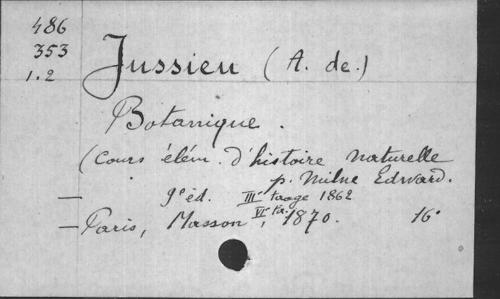 486
353
1.2
Jussieu (A. de.)
Botanique.
(Cours élém. d'histoire naturelle
p. Milne Edward.
— 9e éd. IIIe tirage 1862
— Paris, Masson, VIe tir. 1870. 16°